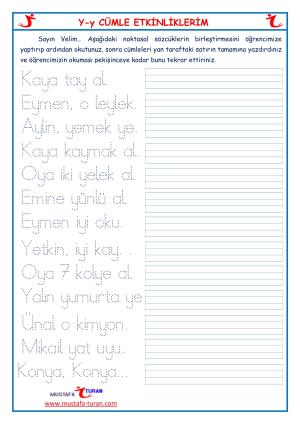 Y-y CÜMLE ETKİNLİKLERİM
Sayın Velim… Aşağıdaki noktasal sözcüklerin birleştirmesini öğrencimize
yaptırıp ardından okutunuz, sonra cümleleri yan taraftaki satırın tamamına yazdırdınız
ve öğrencimizin okuması pekişinceye kadar bunu tekrar ettiriniz.
Kaya tay al.
Eymen, o leylek.
Aylin, yemek ye.
Kaya kaymak al.
Oya iki yelek al.
Emine yünlü al.
Eymen iyi oku.
Yetkin, iyi kay. .
Oya 7 kolye al.
Yalın yumurta ye.
Ünal o kimyon.
Mikail yat uyu.
Konya, Konya...
MUSTAFA TURAN
www.mustafa-turan.com